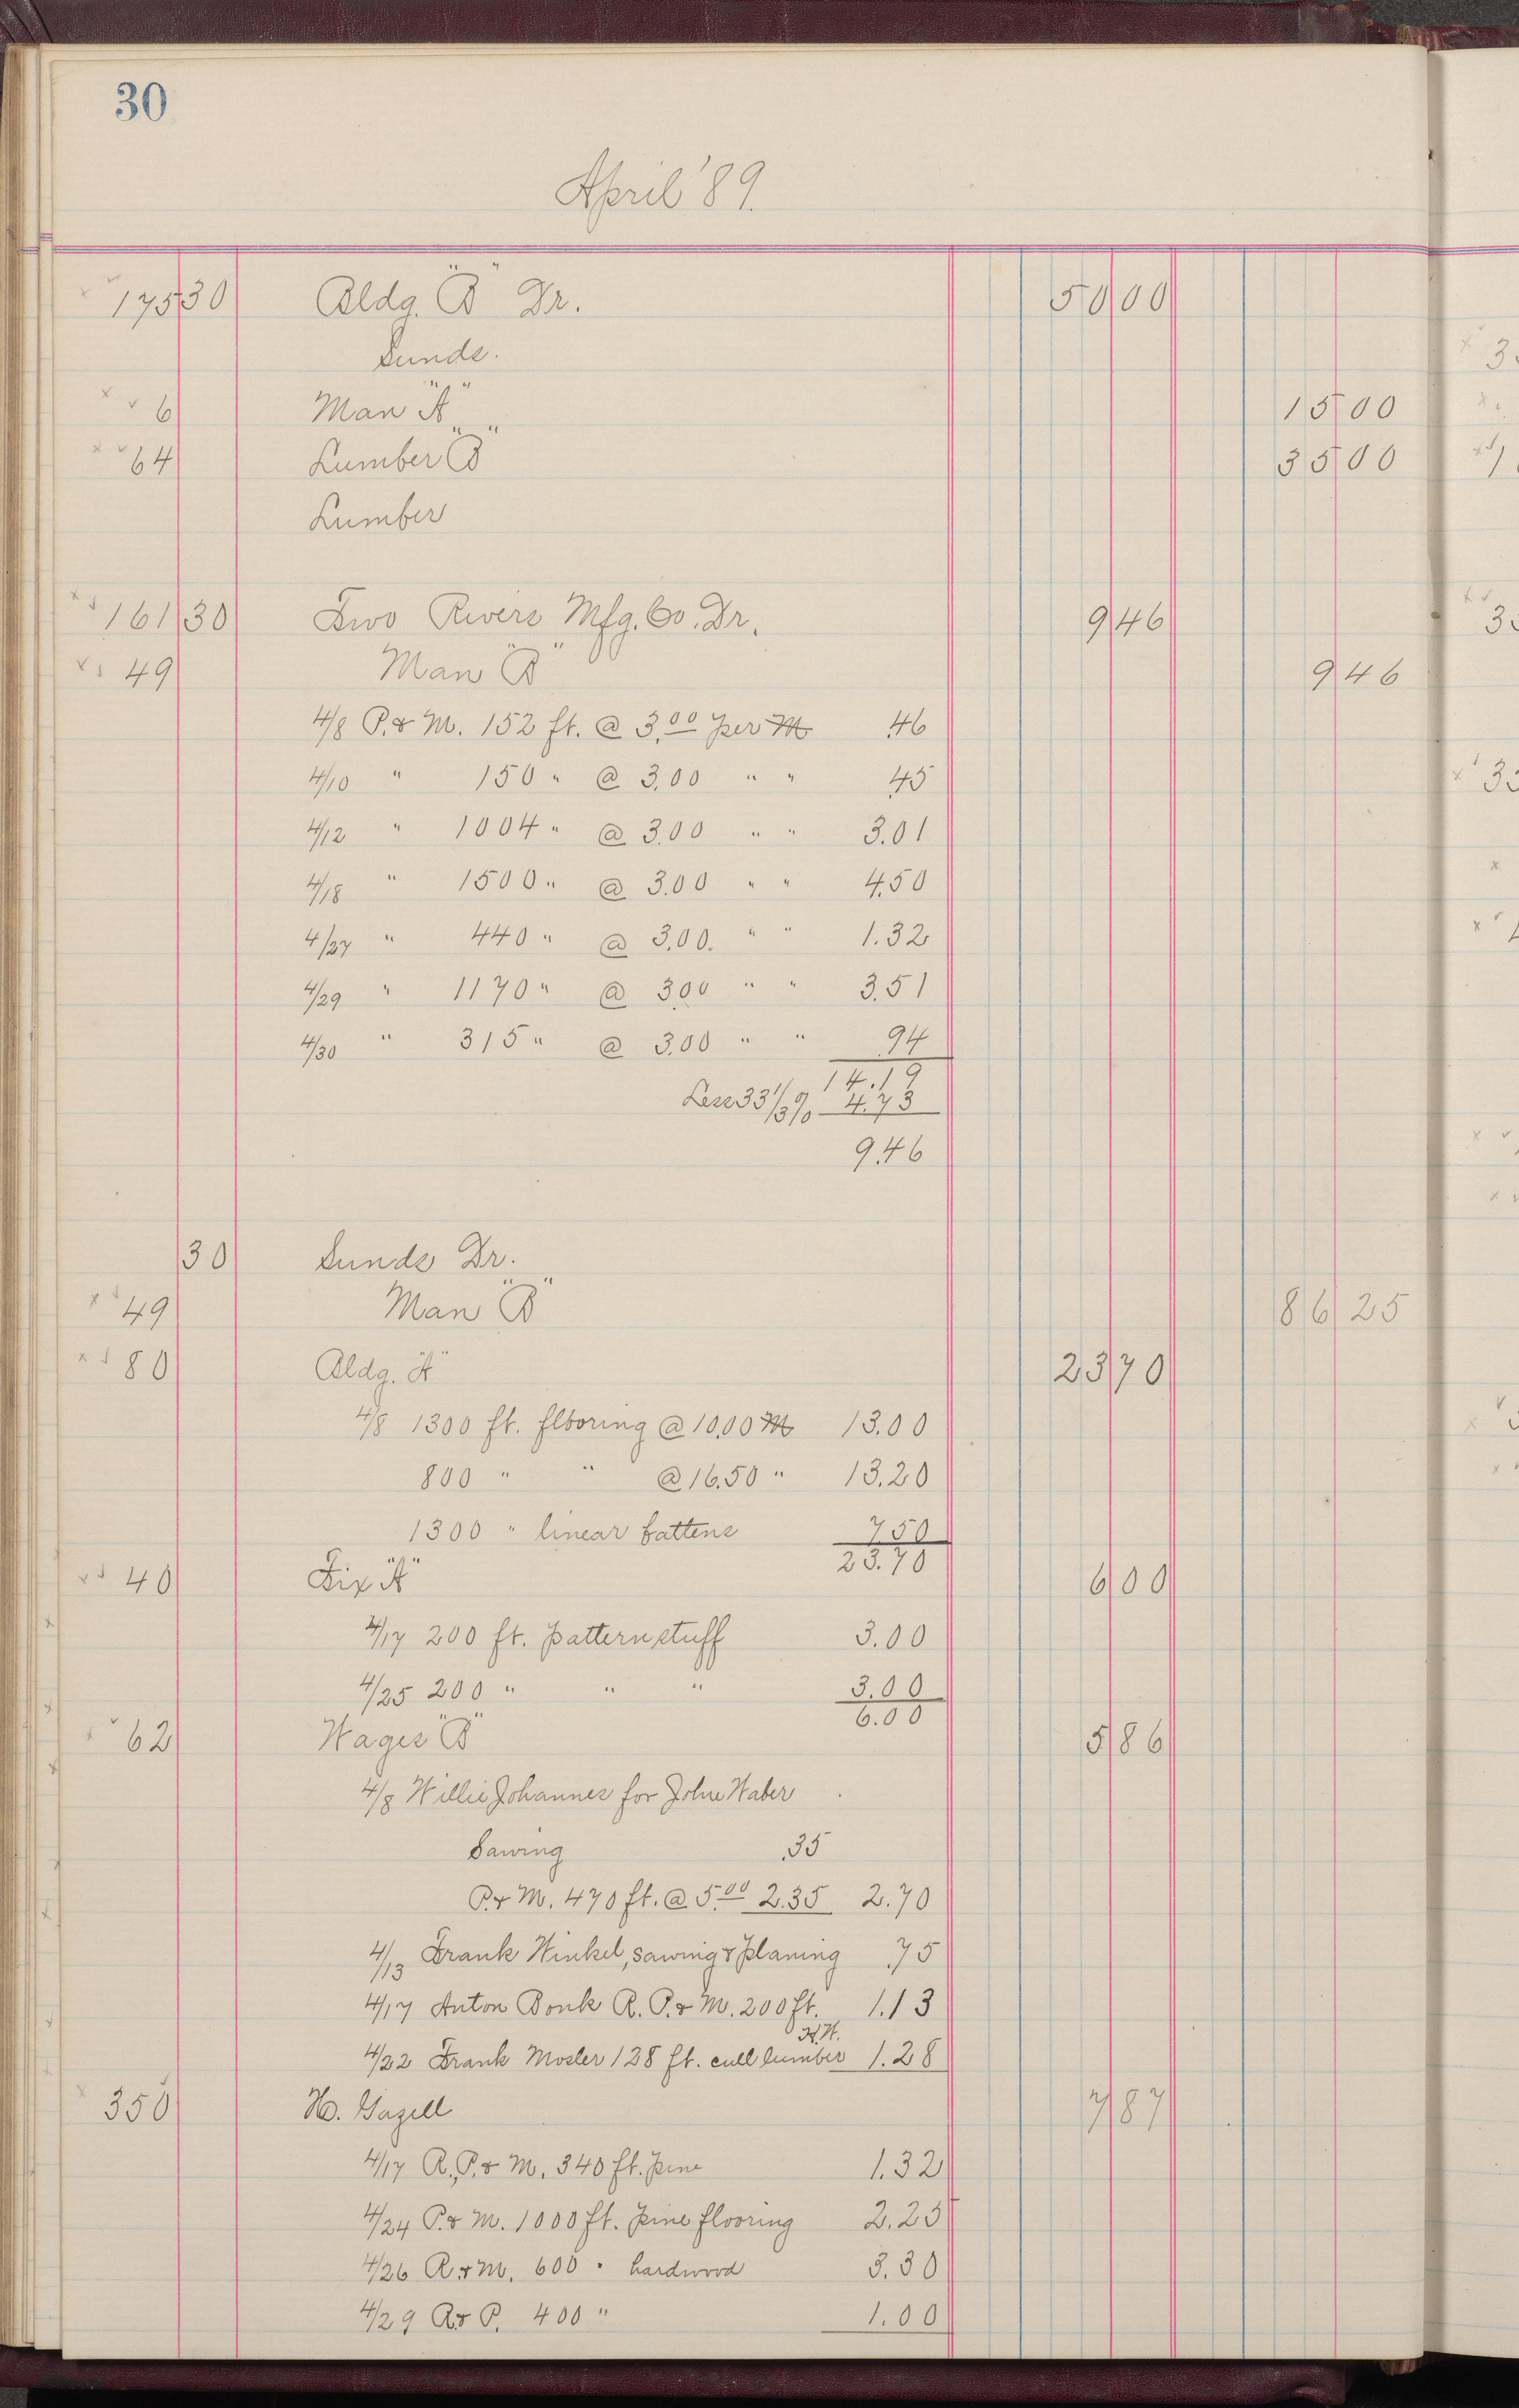 30
April '89.
175 30 Bldg. "B" Dr. 50 00
Sunds.
6 Man "A" 15 00
64 Lumber "B" 35 00
Lumber
161 30 Two Rivers Mfg. Co. Dr. 9 46
49 Man "B" 9 46
4/8 P. & M. 152 ft. @ 3.00 per M .46
4/10 " 150 " @ 3.00 " " .45
4/12 " 1004 " @ 3.00 " " 3.01
4/18 " 1500 " @ 3.00 " " 4.50
4/27 " 440 " @ 3.00. " " 1.32
4/29 " 1170 " @ 3.00 " " 3.51
4/30 " 315 " @ 3.00 " " .94
14.19
Less 33 1/3% 4.73
9.46
30 Sunds Dr.
49 Man "B" 86 25
80 Bldg. "A" 23 70
4/8 1300 ft. flooring @ 10.00 M 13.00
800 " " @ 16.50 " 13.20
1300 " linear battens 7.50
23.70
40 Fix "A" 6 00
4/17 200 ft. pattern stuff 3.00
4/25 200 " " " 3.00
6.00
62 Wages "B" 5 86
4/8 Willie Johannes for John Waber
Sawing .35
P. & M. 470 ft. @ 5.00 2.35 2.70
4/13 Frank Winkel, sawing & planing .75
4/17 Anton Bonk R. P. & M. 200 ft. 1.13
H.W.
4/22 Frank Mosler 128 ft. cull lumber 1.28
350 H. Gazell 7 87
4/17 R., P. & M. 340 ft. pine 1.32
4/24 P. & M. 1000 ft. pine flooring 2.25
4/26 R. & M. 600 " hardwood 3.30
4/29 R. & P. 400 " 1.00